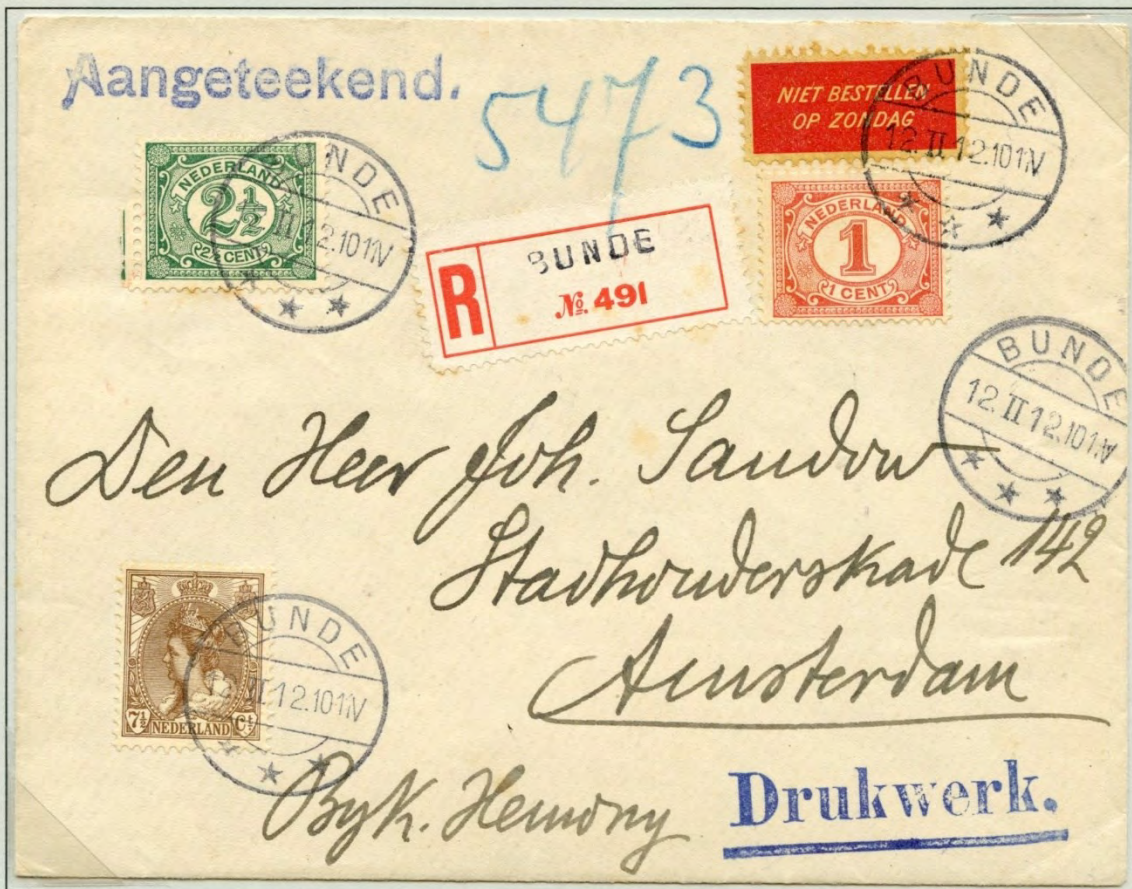 Aangeteekend.
5473
NIET BESTELLEN
OP ZONDAG
BUNDE
12.II.12.101N
NEDERLAND
2½
2½ CENT
BUNDE
II 2.101N
R
BUNDE
№ 491
NEDERLAND
1
1 CENT
BUNDE
12.II12.101N
Den Heer Joh. Sandow
Stadhouderskade 142
Amsterdam
7½ NEDERLAND Ct
BUNDE
II12.101N
Byk. Hemony
Drukwerk.